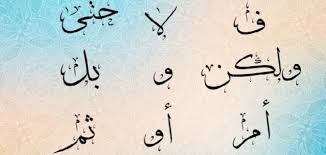 ف لا حتى
ولكن و بل
أم أو ثم